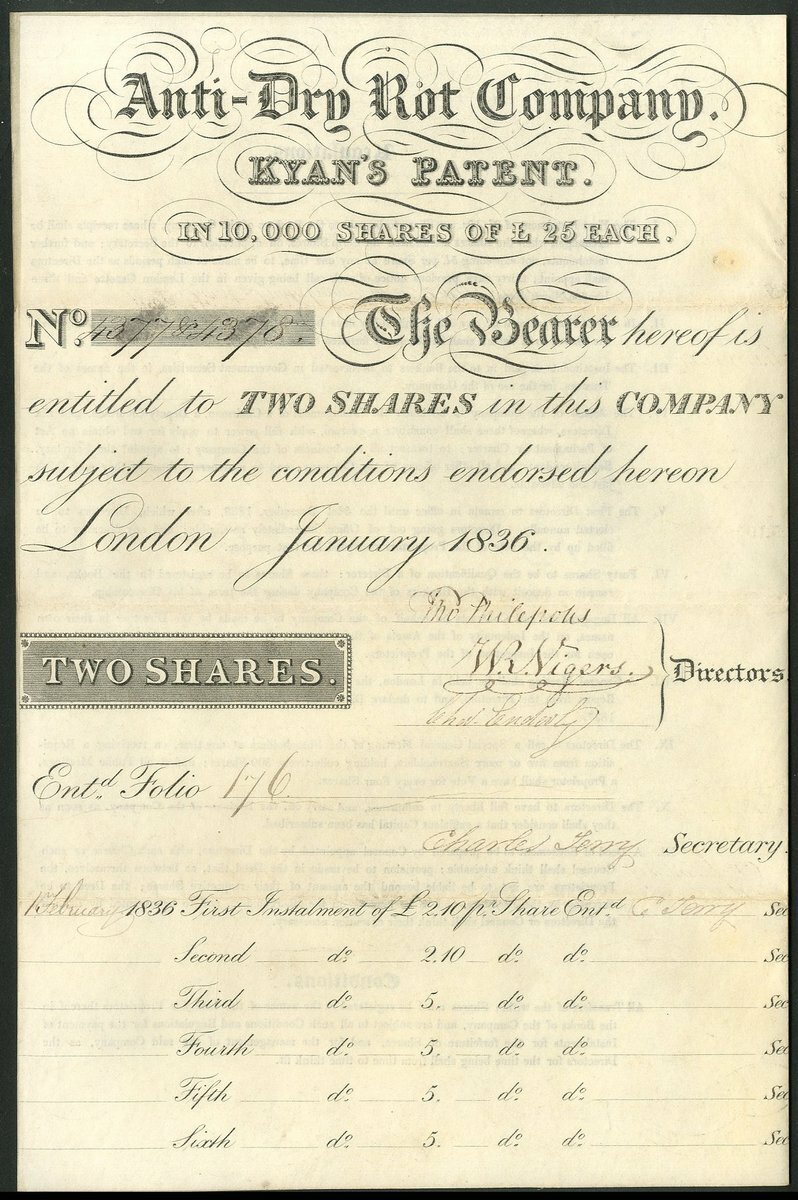 Anti-Dry Rot Company.
KYAN'S PATENT.
IN 10,000 SHARES OF £ 25 EACH.
No. 4377 & 4378. The Bearer hereof is
entitled to TWO SHARES in this COMPANY
subject to the conditions endorsed hereon
London January 1836.
TWO SHARES.
Directors.
Entd. Folio 176
Charles Terry Secretary.
1 February 1836 First Instalment of £ 2.10 pr. Share Entd. C Terry Sec
Second do. 2.10 do. do. Sec
Third do. 5. do. do. Sec
Fourth do. 5. do. do. Sec
Fifth do. 5. do. do. Sec
Sixth do. 5. do. do. Sec